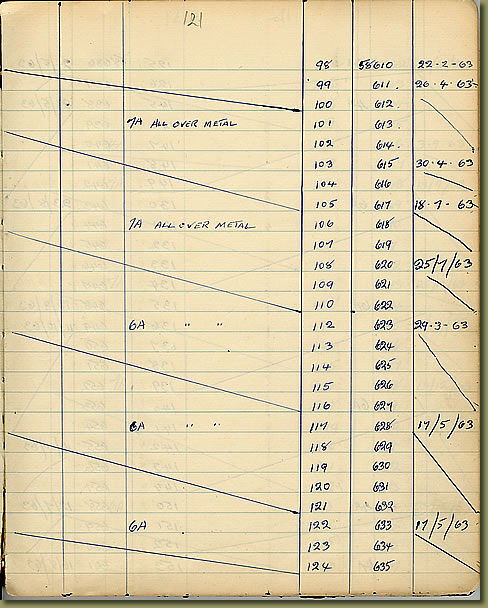 121
98 58610 22-2-63
99 611. 26.4.63
100 612.
7A ALL OVER METAL 101 613.
102 614.
103 615 30.4.63
104 616
105 617 18-7-63
7A ALL OVER METAL 106 618
107 619
108 620 25/7/63
109 621
110 622
6A " " 112 623 29-3-63
113 624
114 625
115 626
116 627
6A " " 117 628 17/5/63
118 629
119 630
120 631
121 632
6A 122 633 17/5/63
123 634
124 635